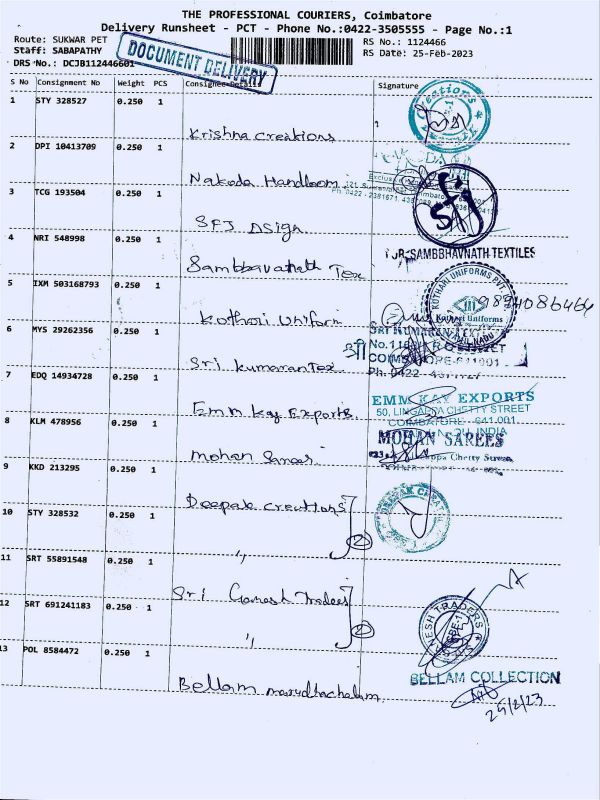 THE PROFESSIONAL COURIERS, Coimbatore
Delivery Runsheet - PCT - Phone No.:0422-3505555 - Page No.:1
Route: SUKWAR PET
RS No.: 1124466
Staff: SABAPATHY
RS Date: 25-Feb-2023
DRS No.: DCJB112446601
DOCUMENT DELIVERY
S No Consignment No Weight PCS Consignee Details Signature
1 STY 328527 0.250 1
Krishna Creations
2 DPI 10413709 0.250 1
Nakoda Handloom
3 TCG 193504 0.250 1
SFJ DSign
SFJ
4 NRI 548998 0.250 1
Sambbavanath Tex
FOR SAMBBHAVNATH TEXTILES
5 IXM 503168793 0.250 1
KOTHARI UNIFORMS PVT.
Kothari Uniforms
TAMIL NADU
9894086466
Kothari Uniform
6 MYS 29262356 0.250 1
SRI KUMARAN
Sri Kumaran Tex
7 EDQ 14934728 0.250 1
EMM KAY EXPORTS
50, LINGAPPA CHETTY STREET
COIMBATORE - 641.001
INDIA
Emm Kay Exports
8 KLM 478956 0.250 1
MOHAN SAREES
Chetty Street
Mohan Sarees
9 KKD 213295 0.250 1
Deepak Creations
2
10 STY 328532 0.250 1
"
11 SRT 55891548 0.250 1
Sri Ganesh Traders
2
12 SRT 691241183 0.250 1
GANESH TRADERS
"
13 POL 8584472 0.250 1
BELLAM COLLECTION
Bellam marudhachalam
25/2/23